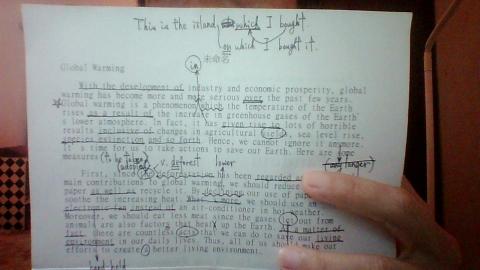 This is the island, which I bought.
on which I bought it.
in 未命名
Global Warming
With the development of industry and economic prosperity, global
warming has become more and more serious over the past few years.
Global warming is a phenomenon which the temperature of the Earth
rises as a result of the increase in greenhouse gases of the Earth'
s lower atmosphere. In fact, it has given rise to lots of horrible
results inclusive of changes in agricultural yields, sea level rise,
species extinction and so forth. Hence, we cannot ignore it anymore.
It's time for us to take actions to save our Earth. Here are some
measures (to be taken
adopted)
v. deforest lower
(any longer)
First, since deforestation has been regarded
main contributions to global warming, we should reduce
paper as well as recycle it. By
soothe the increasing heat. What's more, we should use an
electronic fan instead of an air-conditioner in hot weather.
Moreover, we should eat less meat since the gases let out from
animals are also factors that heat up the Earth.
fact, there are countless acts that we can do to save our living
environment in our daily lives. Thus, all of us should make our
efforts to create a better living environment.